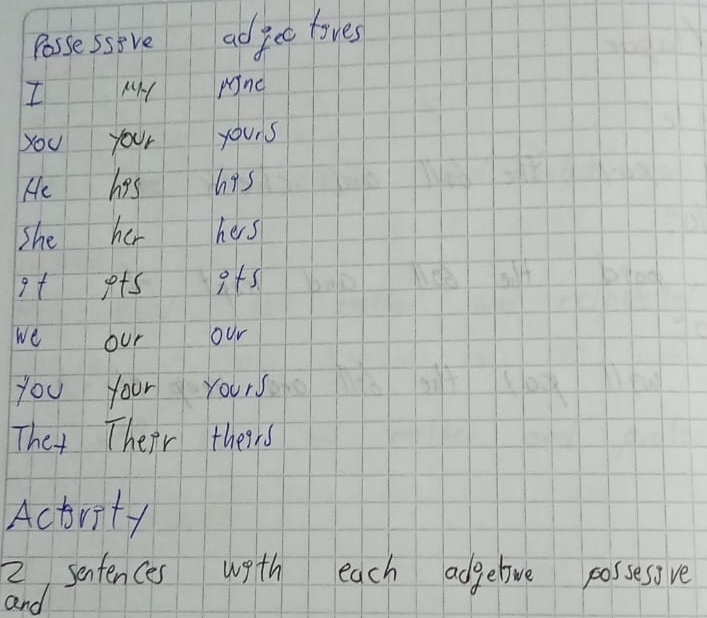 Possessive adjectives
I my mine
you your yours
He his his
She her hers
it its its
we our our
you your yours
They Their theirs
Activity
2 sentences with each adgetive possessive
and